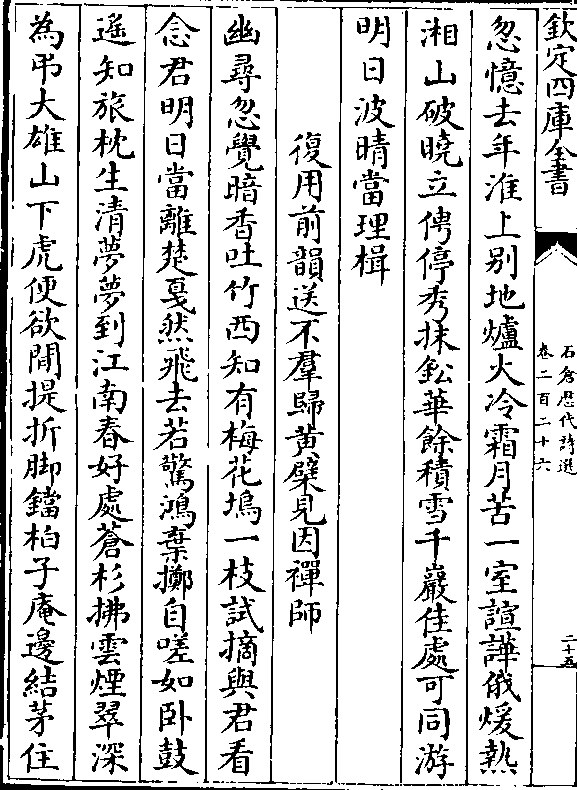 欽定四庫全書
石倉歷代詩選
卷二百二十六
二十五
忽憶去年淮上别地爐火冷霜月苦一室諠譁俄煖熱
湘山破曉立俜停秀抹鉛華餘積雪千巖佳處可同游
明日波晴當理楫
復用前韻送不羣歸黄檗見因禪師
幽尋忽覺暗香吐竹西知有梅花塢一枝試摘與君看
念君明日當離楚戛然飛去若驚鴻棄擲自嗟如卧鼓
遥知旅枕生清夢夢到江南春好處蒼杉拂雲煙翠深
為弔大雄山下虎便欲閒提折脚鐺柏子庵邊結茅住